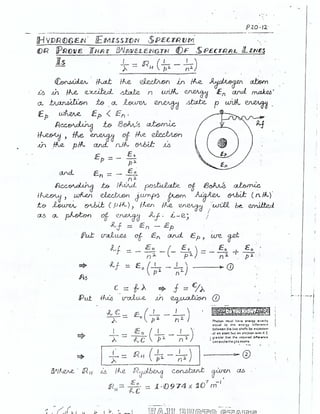 P20-12
HYDROGEN EMISSION SPECTRUM
OR PROVE THAT WAVELENGTH OF SPECTRAL LINES
IS 1/λ = R_H (1/p² − 1/n²)
Consider that the electron in the hydrogen atom
is in the excited state n with energy En and makes
a transition to a lower energy state p with energy
Ep where Ep < En.
According to Bohr's atomic
theory, the energy of the electron
in the pth and nth orbit is
Ep = − E₀/p²
and En = − E₀/n²
hf
Ep
En
According to third postulate of Bohr's atomic
theory, when electron jumps from higher orbit (nth)
to lower orbit (pth), then the energy will be emitted
as a photon of energy hf. i-e;
hf = En − Ep
Put values of En and Ep, we get
hf = − E₀/n² − (− E₀/p²) = − E₀/n² + E₀/p²
⇒ hf = E₀ (1/p² − 1/n²) → ①
As
c = fλ ⇒ f = c/λ
Put this value in equation ①
hc/λ = E₀ (1/p² − 1/n²)
⇒ 1/λ = E₀/hc (1/p² − 1/n²)
⇒ 1/λ = R_H (1/p² − 1/n²) → ②
Do You Know?
Photon must have energy exactly
equal to the energy difference
between the two shells for excitation
of an atom but an electron with K.E
greater than the required difference
can excite the gas atoms.
Where R_H is the Rydberg constant given as
R_H = E₀/hc = 1.0974 x 10⁷ m⁻¹